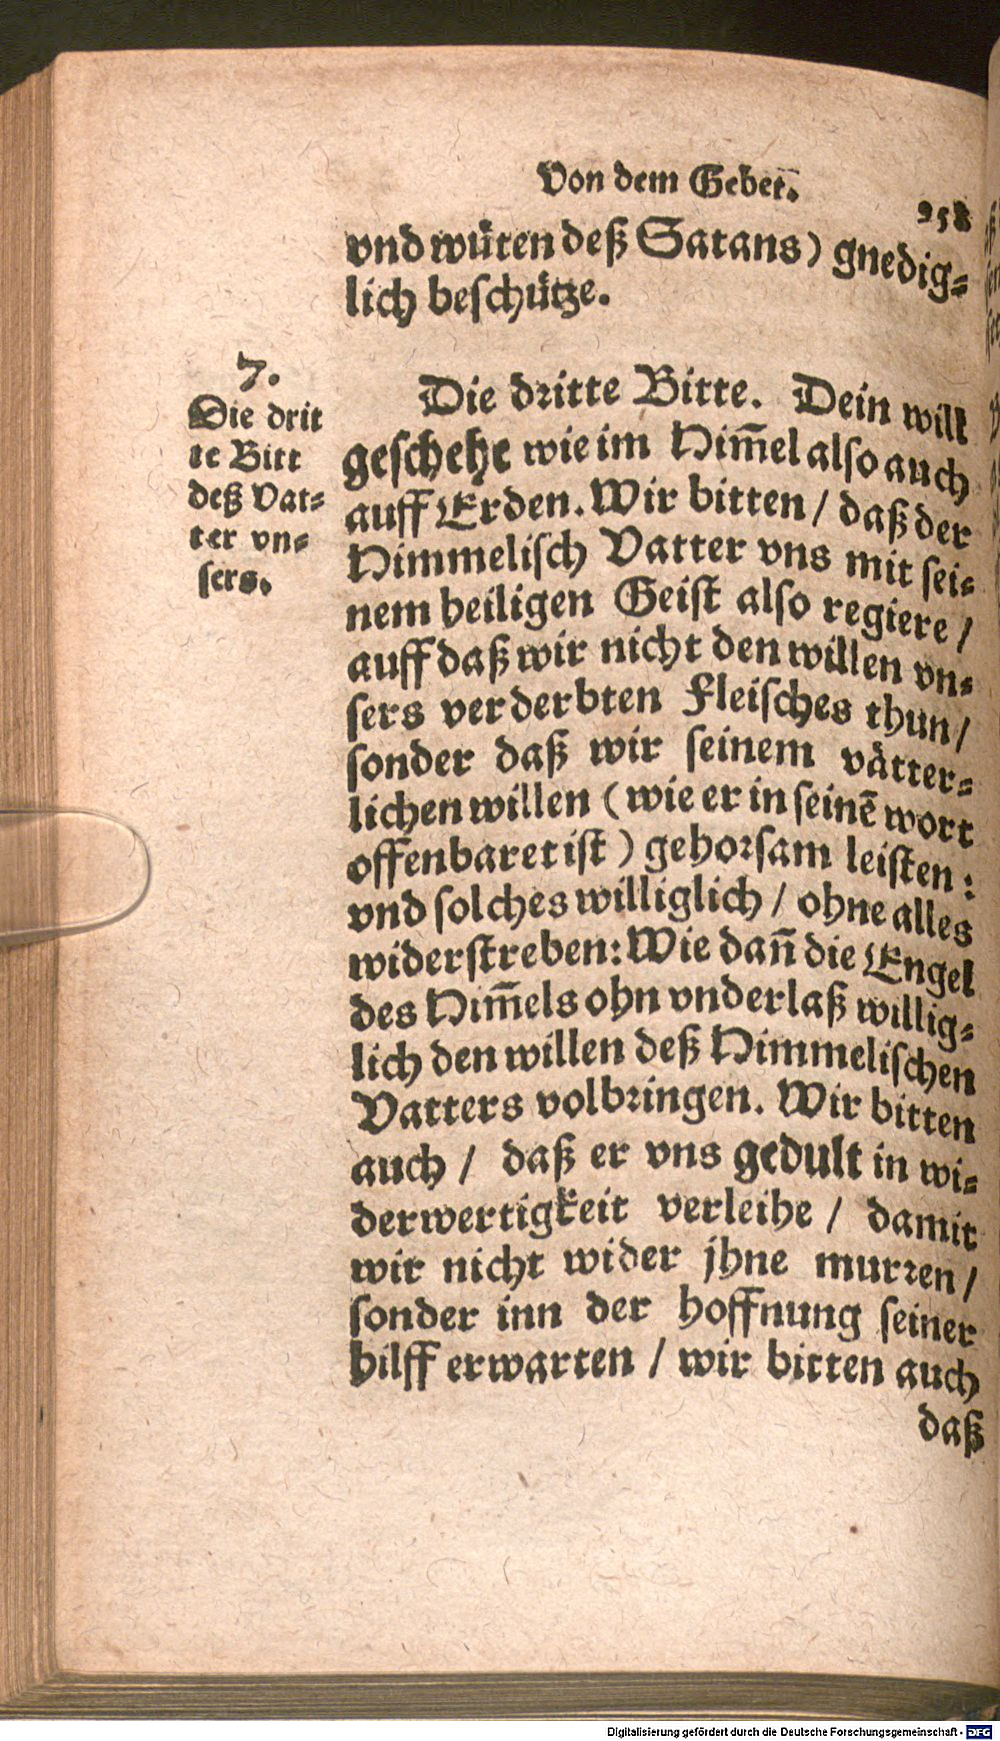 Von dem Gebet.
258
vnd wüten deß Satans) gnedig⸗
lich beschütze.
7.
Die drit
te Bitt
deß Vat⸗
ter vn⸗
sers.
Die dritte Bitte. Dein will
geschehe wie im Him̅el also auch
auff Erden. Wir bitten / daß der
Himmelisch Vatter vns mit sei⸗
nem heiligen Geist also regiere /
auff daß wir nicht den willen vn⸗
sers verderbten Fleisches thun /
sonder daß wir seinem vätter⸗
lichen willen (wie er in seinē wort
offenbaret ist) gehorsam leisten:
vnd solches williglich / ohne alles
widerstreben: Wie dan̅ die Engel
des Him̅els ohn vnderlaß willig⸗
lich den willen deß Himmelischen
Vatters volbringen. Wir bitten
auch / daß er vns gedult in wi⸗
derwertigkeit verleihe / damit
wir nicht wider jhne murren /
sonder inn der hoffnung seiner
hilff erwarten / wir bitten auch
daß
Digitalisierung gefördert durch die Deutsche Forschungsgemeinschaft - DFG